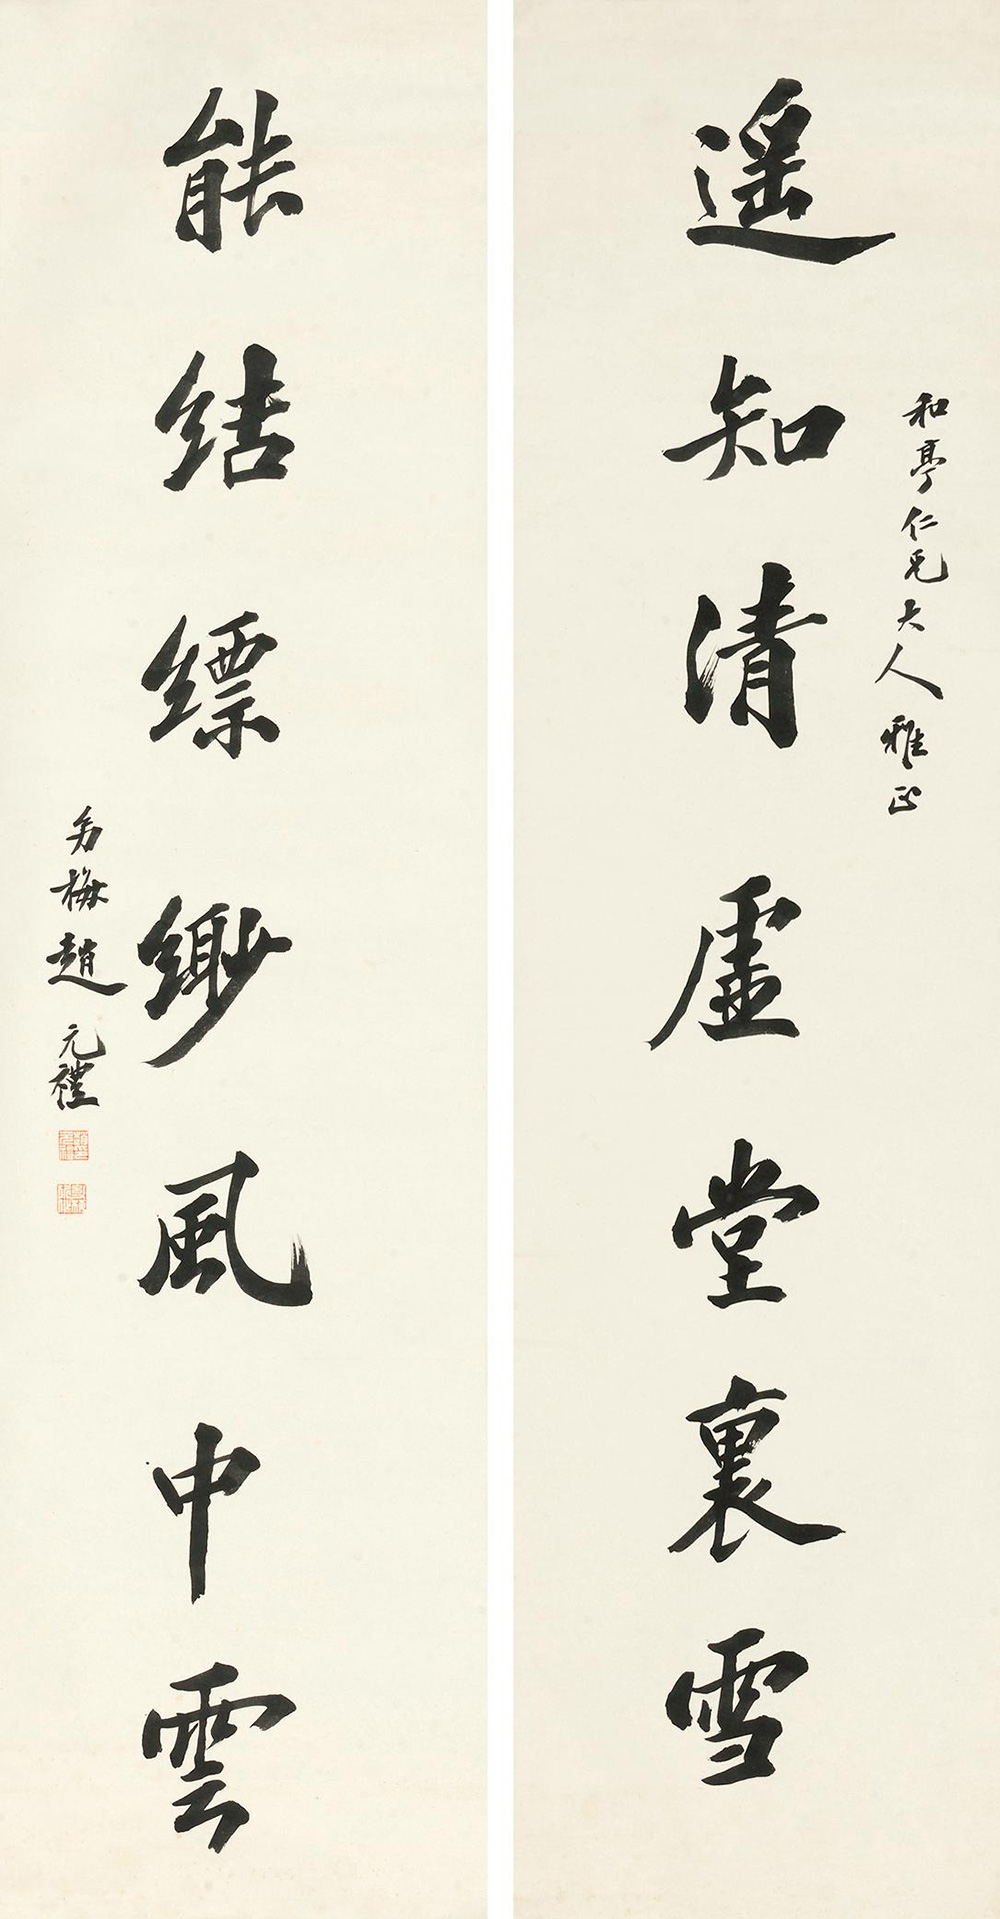 遥知清虛堂裏雪
和亭仁兄大人雅正
能結縹緲風中雲
幼梅趙元禮